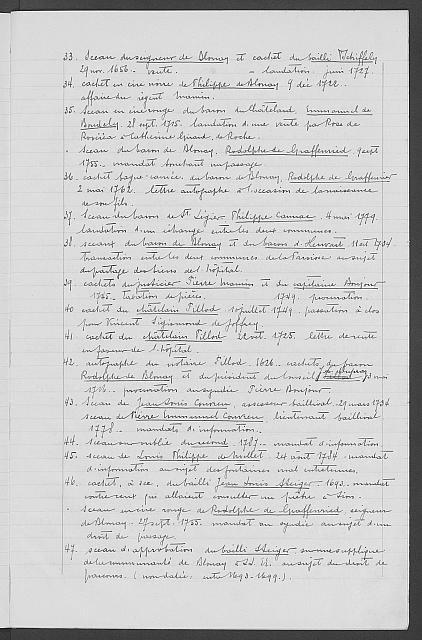 33. Sceau du seigneur de Blonay et cachet du bailli Tschiffely
29 nov. 1656 - vente. - laudation. juin 1727.
34. cachet en cire noire de Philippe de Blonay 9 déc 1722.
affaire du régent Mamin.
35. Sceau en cire rouge du baron du Châtelard, Emmanuel de
Bondely. 28 sept. 1715. laudation d'une vente par Rose de
à Catherine Girard de Roche.
- sceau du baron de Blonay, Rodolphe de Graffenried. 9 sept
1755. - mandat touchant un passage.
36. cachet bague-camée du baron de Blonay, Rodolphe de Graffenried
2 mai 1762. lettre autographe à l'occasion de la naissance
de son fils.
37. Sceau du baron de St Légier, Philippe Cannac. 4 mai 1779.
laudation d'un échange entre les deux communes.
38. sceaux du baron de Blonay et du baron d'Hauteville. 1734.
Transaction entre les deux communes de la Paroisse au sujet
du partage des biens de l'hôpital.
39. cachets du justicier Pierre Mamin et du capitaine Bonjour
1755. taxation de pièces. 1749. procuration.
40. cachet du châtelain Pilliod. 10 juillet 1749. passation à clos
pour Vincent Sigismond de Joffrey.
41. cachet du châtelain Pilliod. 22 oct. 1725. lettre de rente
en faveur de l'hôpital.
42. autographe du notaire Pilliod. 1626. cachets du baron
Rodolphe de Blonay et du président du conseil 3 mai
1766. - procuration au syndic Pierre Bonjour.
43. Sceau de Jean Louis Couvreu, assesseur baillival. 29 mars 1734
sceau de Pierre Emmanuel Couvreu, lieutenant baillival
1778. - mandats d'information.
44. Sceau su-oublié du second. 1787. - mandat d'information.
45. sceau de Louis Philippe de Mellet. 24 août 1784. mandat
d'information au sujet des fontaines mal entretenues.
46. cachet, à sec, du bailli Jean Louis Steiger. 1693. mandat
contre ceux qui allaient consulter un prêtre à Sion.
- sceau en cire rouge de Rodolphe de Graffenried, seigneur
de Blonay. 27 sept. 1755. mandat au syndic au sujet d'un
droit de passage.
47. sceau d'approbation du bailli Steiger, sur une supplique
de la communauté de Blonay à LL. EE. au sujet du droit de
(non datée: entre 1693-1699.).